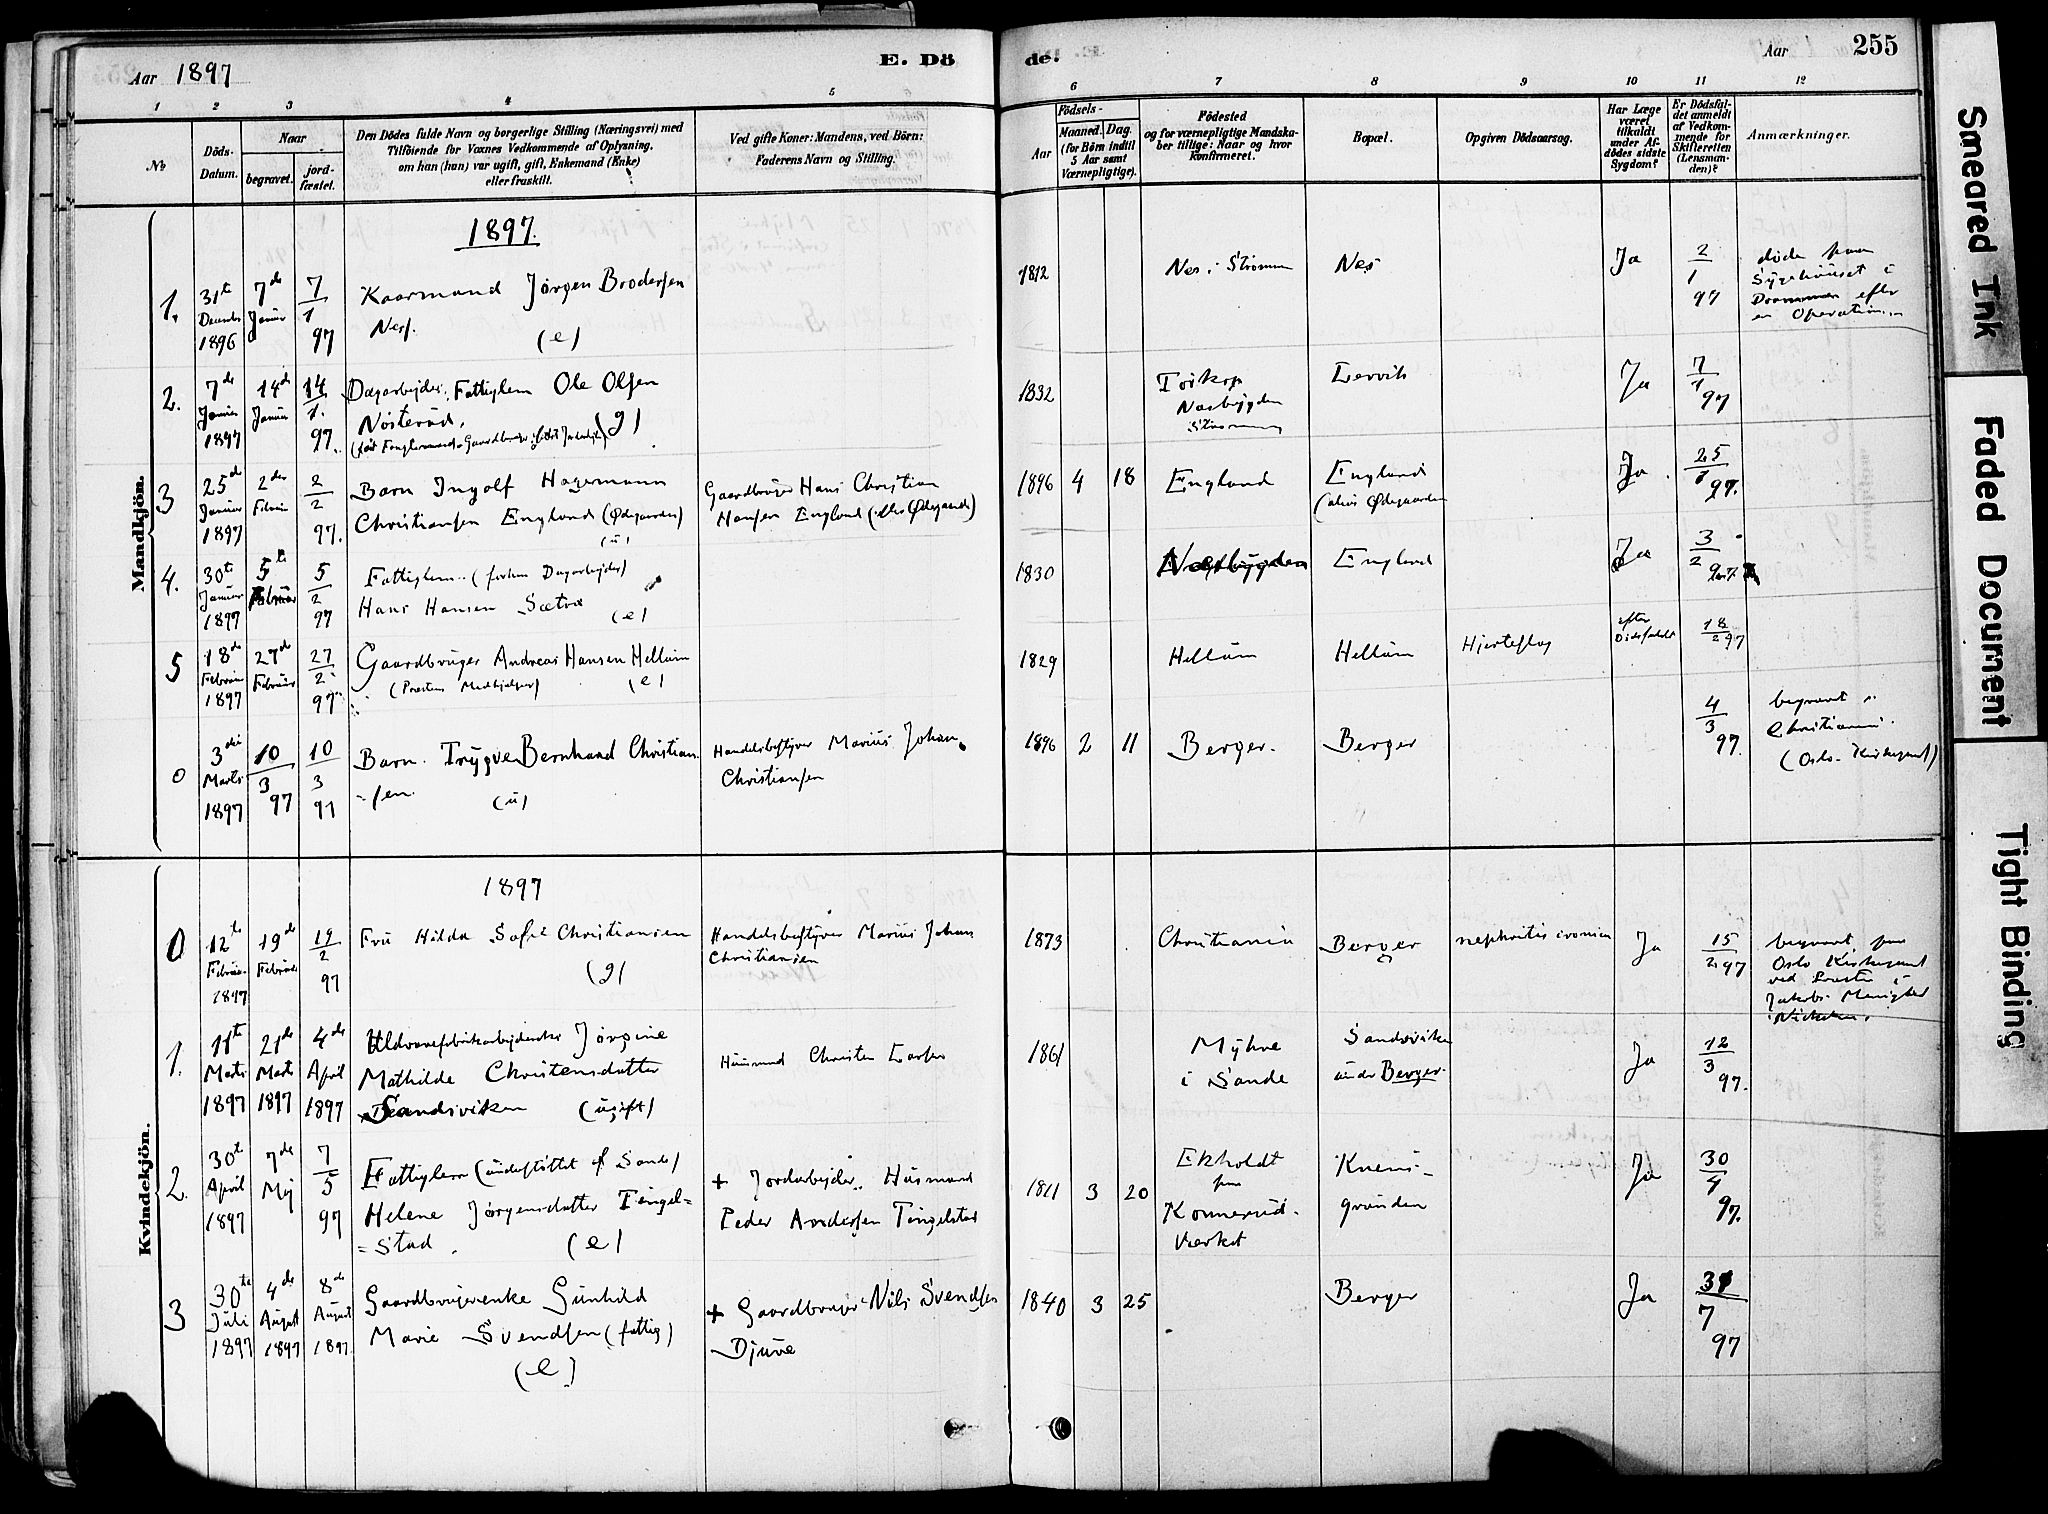 Aar 1897
E. Dö
de.
Aar
255
1 2 3 4 5 6 7 8 9 10 11 12
No
Döds-
Datum.
Naar
begravet.
jord-
fæstet.
Den Dödes fulde Navn og borgerlige Stilling (Næringsvei) med
Tilföiende for Voxnes Vedkommende af Oplysning,
om han (hun) var ugift, gift, Enkemand (Enke)
eller fraskilt.
Ved gifte Koner: Mandens, ved Börn:
Faderens Navn og Stilling.
Födsels-
Aar
Maaned.
Dag.
(for Börn indtil
5 Aar samt
Værnepligtige).
Födested
og for værnepligtige Mandska-
ber tillige: Naar og hvor
konfirmeret.
Bopæl.
Opgiven Dödsaarsag.
Har Læge
været
tilkaldt
under Af-
dödes sidste
Sygdom?
Er Dödsfal-
det anmeldt
af Vedkom-
mende for
Skifteretten
(Lensman-
den)?
Anmærkninger.
Mandkjön.
1897.
1. 31te Decembr 1896
7de Januar
7/1 97
Kaarmand Jørgen Brodersen
Nes.
(e)
1812
Nes i Strømm
Nes
Ja
2/1 97
døde paa
Sygehuset i
Drammen efter
en Operation
2. 7de Januar 1897
14de Januar
14/1. 97.
Dagarbejder, Fattiglem Ole Olsen
Nøsterud.
(g)
1832
Toskop
Nesbygden
Strømm
Lervik
Ja
7/1 97
3 25de Januar 1897
2den Februar
2/2 97.
Barn Ingolf Hagemann
Christiansen England (Ødegaarden)
(u)
Gaardbruger Hans Christian
Hansen England (alias Ødegaarden)
1896 4 18
England
England
(alias Ødegaarden
Ja.
25/1 97.
4. 30te Januar 1897
5te Februar
5/2 97
Fattiglem (forhen Dagarbejder)
Hans Hansen Sætra
(e)
1830
Nesbygden
England
Ja
3/2 97.
5 18de Februar 1897
27de Februar
27/2 97
Gaardbruger Andreas Hansen Hellum
(Præstens Medhjelper)
(e)
1829
Hellum
Hellum
Hjerteslag
efter
Dødsfaldet
18/2 97
0 3die Marts 1897
10/3 97
10/3 97
Barn. Trygve Bernhard Christian-
-sen.
(u)
Handelsbestyrer Marius Johan
Christiansen
1896 2 11
Berger.
Berger
4/3 97.
begravet i
Christiania.
(Oslo-Kirkegaard)
Kvindekjön.
1897
0 12te Februar 1897
19de Februar
19/2 97
Fru Hilda Sofie Christiansen
(g)
Handelsbestyrer Marius Johan
Christiansen
1873
Christiania
Berger
nephritis cronica
Ja
15/2 97
begravet paa
Oslo Kirkegaard
ved Præsten i
Jakobs Menighed
1. 11te Marts 1897
21de Marts 1897
4de April 1897
Uldvarefabrikarbejderske Jørgine
Mathilde Christensdatter
Sandsviken (ugift)
Husmand Christen Larsen
1861
Myhre
i Sande
Sandsviken
under Berger.
Ja
12/3 97.
2. 30te April 1897
7de Maj
7/5 97
Fattiglem (understöttet af Sande)
Helene Jørgensdatter Tingel=
=stad.
(e)
+ Jordarbejder, Husmand
Peder Andersen Tingelstad
1811 3 20
Ekholdt
paa
Konnerud-
Værket
Knems-
grunden
Ja
30/4 97.
3 30te Juli 1897
4de August 1897
8de August 1897.
Gaardbrugerenke Gunhild
Marie Svendsen (fattig)
(e)
+ Gaardbruger Nils Svendsen
Djuve
1840 3 25
Berger
Ja
31/7 97
Smeared Ink
Faded Document
Tight Binding